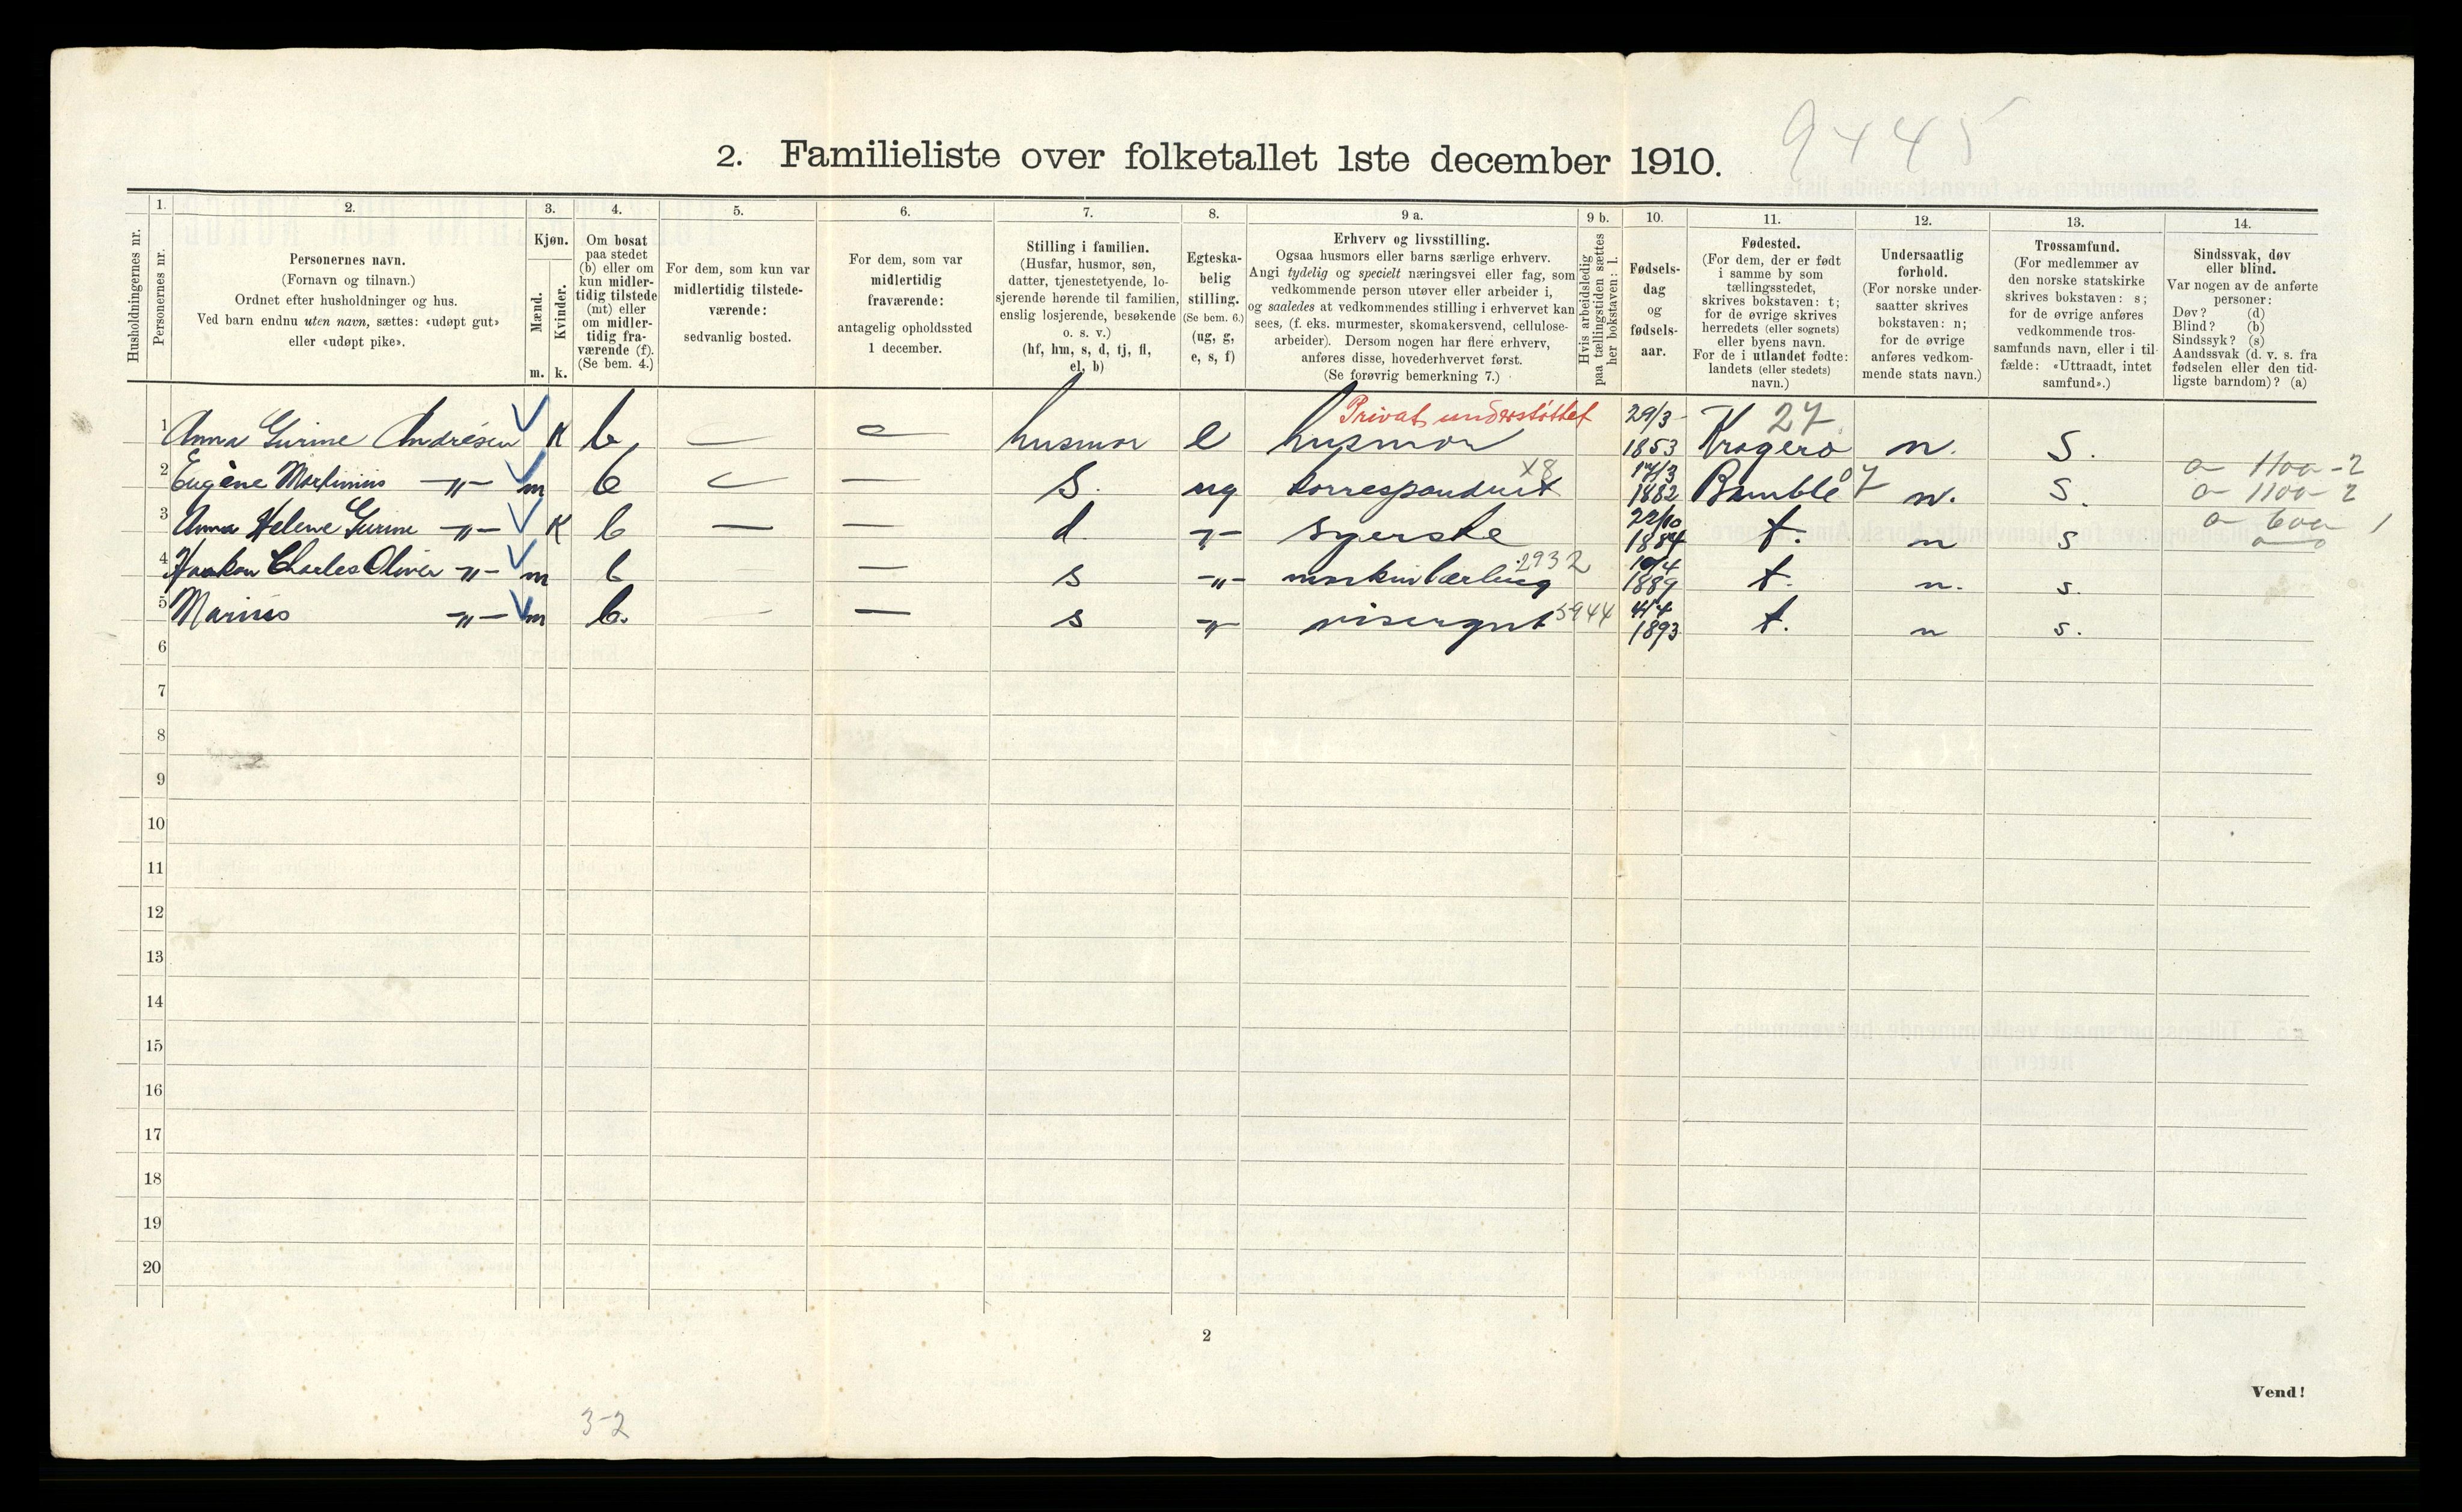 9445
2. Familieliste over folketallet 1ste december 1910.
1. 2. 3. 4. 5. 6. 7. 8. 9 a. 9 b. 10. 11. 12. 13. 14.
Husholdningernes nr.
Personernes nr.
Personernes navn.
(Fornavn og tilnavn.)
Ordnet efter husholdninger og hus.
Ved barn endnu uten navn, sættes: «udøpt gut»
eller «udøpt pike».
Kjøn.
Mænd.
Kvinder.
m. k.
Om bosat
paa stedet
(b) eller om
kun midler-
tidig tilstede
(mt) eller
om midler-
tidig fra-
værende (f).
(Se bem. 4.)
For dem, som kun var
midlertidig tilstede-
værende:
sedvanlig bosted.
For dem, som var
midlertidig
fraværende:
antagelig opholdssted
1 december.
Stilling i familien.
(Husfar, husmor, søn,
datter, tjenestetyende, lo-
sjerende hørende til familien,
enslig losjerende, besøkende
o. s. v.)
(hf, hm, s, d, tj, fl,
el, b)
Egteska-
belig
stilling.
(Se bem. 6.)
(ug, g,
e, s, f)
Erhverv og livsstilling.
Ogsaa husmors eller barns særlige erhverv.
Angi tydelig og specielt næringsvei eller fag, som
vedkommende person utøver eller arbeider i,
og saaledes at vedkommendes stilling i erhvervet kan
sees, (f. eks. murmester, skomakersvend, cellulose-
arbeider). Dersom nogen har flere erhverv,
anføres disse, hovederhvervet først.
(Se forøvrig bemerkning 7.)
Hvis arbeidsledig
paa tællingstiden sættes
her bokstaven: l.
Fødsels-
dag
og
fødsels-
aar.
Fødested.
(For dem, der er født
i samme by som
tællingsstedet,
skrives bokstaven: t;
for de øvrige skrives
herredets (eller sognets)
eller byens navn.
For de i utlandet fødte:
landets (eller stedets)
navn.)
Undersaatlig
forhold.
(For norske under-
saatter skrives
bokstaven: n;
for de øvrige
anføres vedkom-
mende stats navn.)
Trossamfund.
(For medlemmer av
den norske statskirke
skrives bokstaven: s;
for de øvrige anføres
vedkommende tros-
samfunds navn, eller i til-
fælde: «Uttraadt, intet
samfund».)
Sindssvak, døv
eller blind.
Var nogen av de anførte
personer:
Døv? (d)
Blind? (b)
Sindssyk? (s)
Aandssvak (d. v. s. fra
fødselen eller den tid-
ligste barndom)? (a)
Privat understøttet 29/3 27
1 Anna Gurine Andresen K b. — — husmor e husmor 1853 Kragerø n. S.
x8 17/3 07 a 1100-2
2 Eugène Martinius -"- m b — — S. ug korrespondent 1882 Bamble n. S. a 1100-2
22/10 a 600 1
3 Anna Helene Gurine -"- K b — — d. -"- syerske 1884 t. n s
2932 10/4
4 Haakon Charles Oliver -"- m b — s -"- maskinlærling 1889 t. n. s.
5944 4/4
5 Marius -"- m b. — — s -"- visergut 1893 t. n s.
6
7
8
9
10
11
12
13
14
15
16
17
18
19
20
2
Vend!
3-2